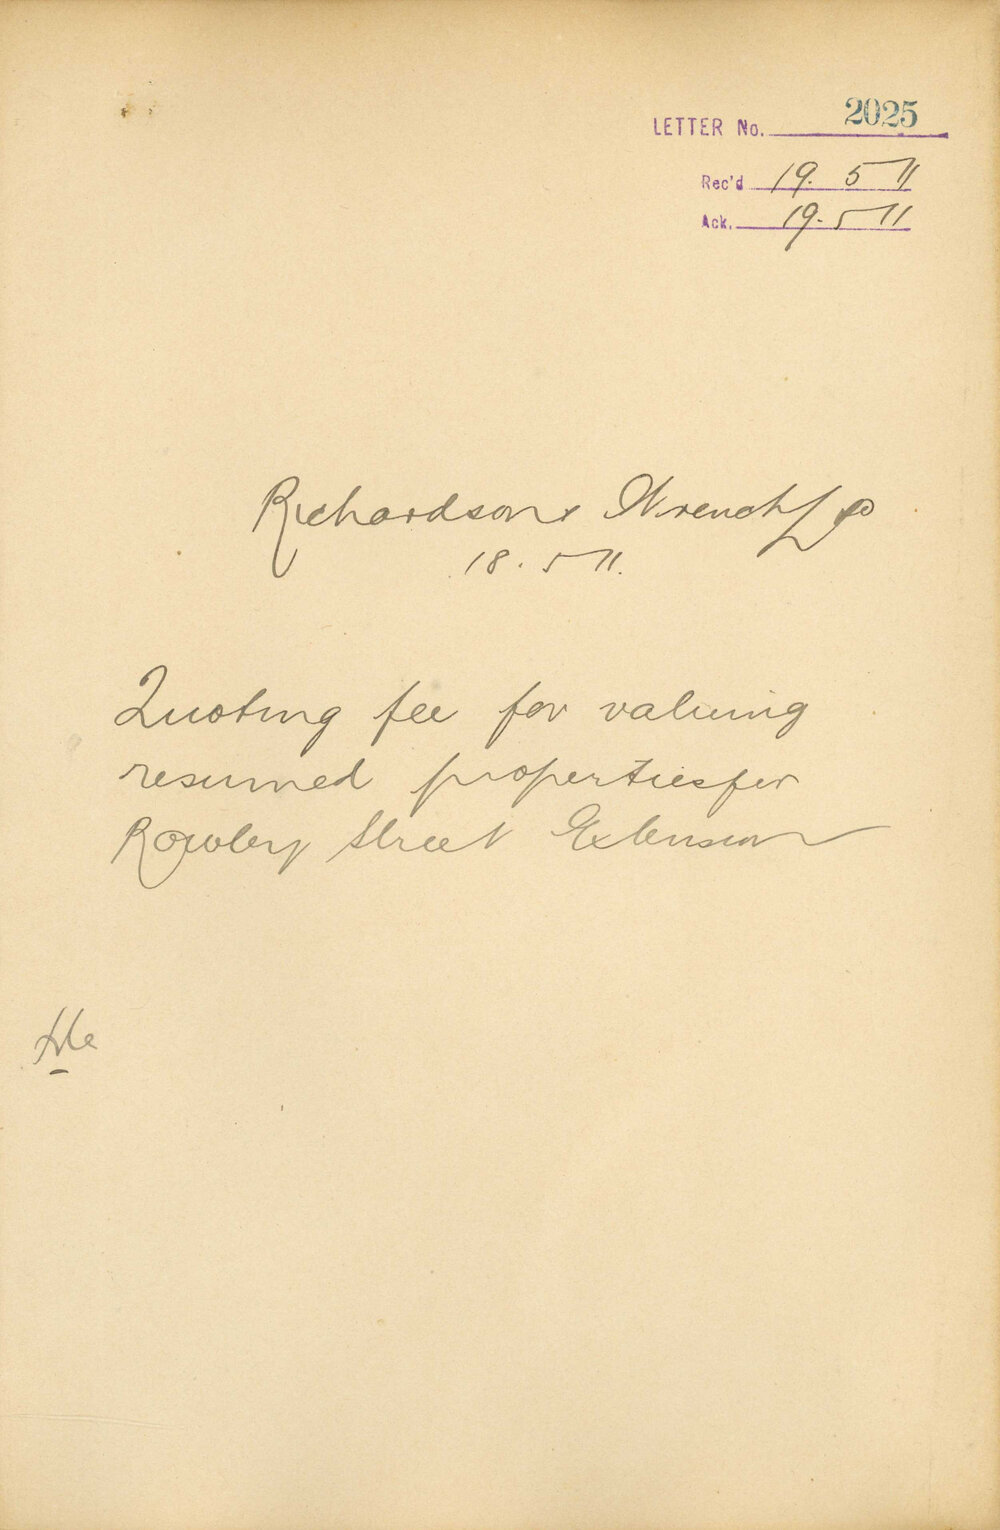 LETTER No. 2025
Rec'd 19. 5 11
Ack. 19. 5 11
Richardson & Wrench Ld
18. 5 11.
Quoting fee for valuing
resumed properties for
Rowley Street Extension